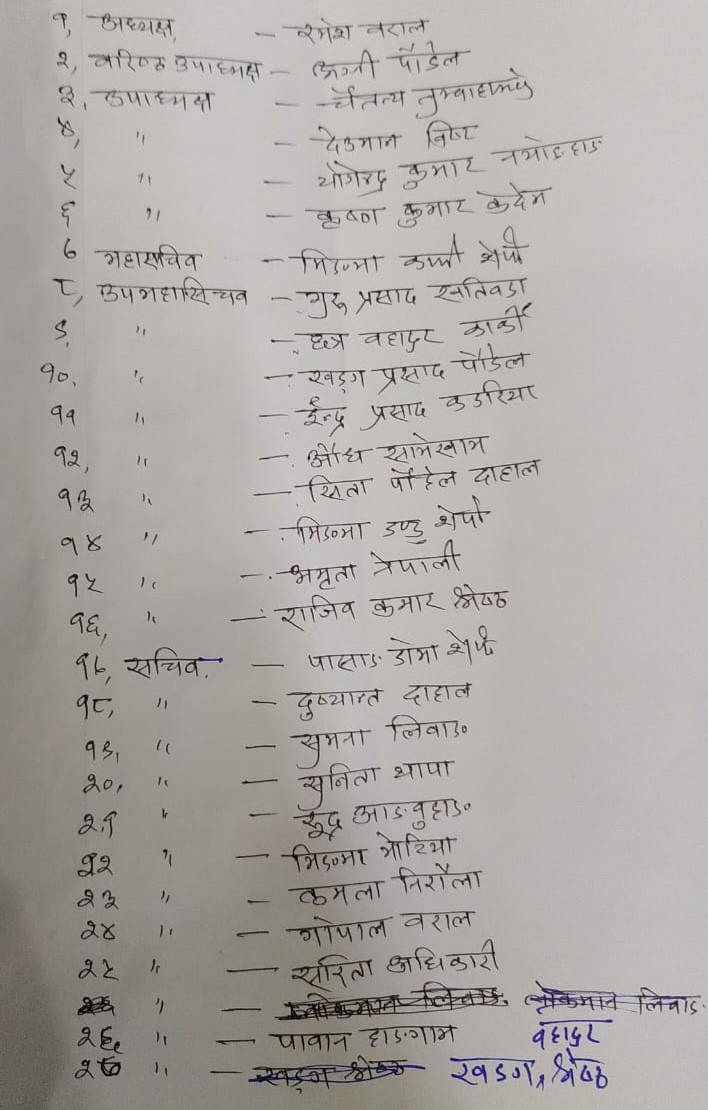 १, अध्यक्ष, - रमेश वराल
२, वरिष्ठ उपाध्यक्ष - अग्नी पौडेल
३, उपाध्यक्ष - चैतन्य तुम्वाहाम्फे
४, " - देउमान विष्ट
५ " - योगेन्द्र कुमार नयोङहाङ
६ " - कृष्ण कुमार कदेम
७ महासचिव - मिङमा शेर्पा
८, उपमहासिचव - गुरु प्रसाद खतिवडा
९, " - छत्र वहादुर कार्की
१०, " - खड्ग प्रसाद पौडेल
११ " - ईन्द्र प्रसाद कडरिया
१२, " - सामेखाम
१३ " - सिता पौडेल दाहाल
१४ " - मिङमा शेर्पा
१५ " - अमृता नेपाली
१६, " - राजिव कुमार श्रेष्ठ
१७, सचिव. - पासाङ डोमा शेर्पा
१८, " - दुष्यान्त दाहाल
१९, " - सुमना लिवाङ
२०, " - सुनिता थापा
२१ " - आङवुहाङ
२२ " - मिङमा भोटिया
२३ " - कमला निरौला
२४ " - गोपाल वराल
२५ " - सरिता अधिकारी
" - लिवाङ
२६ " - पावान हाङगाम वहादुर
२७ " - खड्ग श्रेष्ठ खडग श्रेष्ठ